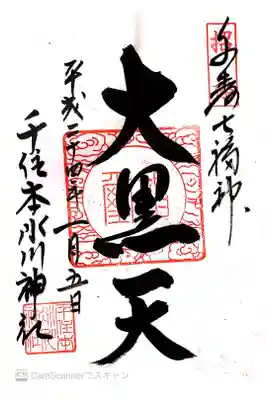 千寿七福神
大黒天
平成二十四年一月五日
千住本氷川神社
CamScannerでスキャン